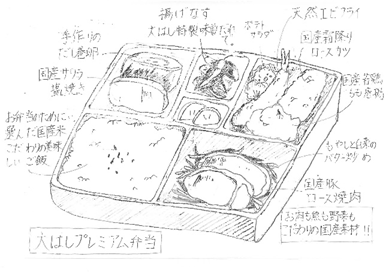 手作りの
だし巻卵
揚げなす
大はし特製味噌だれ
で。
ポテト
サラダ
天然エビフライ
国産霜降り
ロースカツ
国産サワラ
塩焼き
国産若鶏
もも唐揚
お弁当のために
選んだ国産米
こだわりの美味
しいご飯
もやしと白菜の
バター炒め
国産豚
ロース焼肉
お肉も魚も野菜も
こだわりの国産素材!!
大はしプレミアム弁当